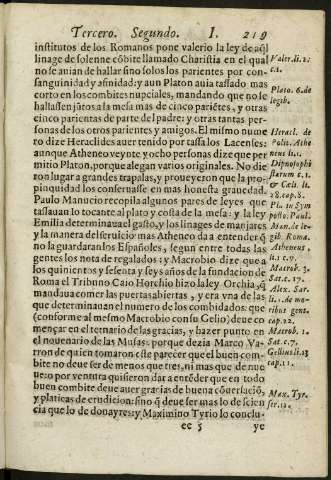 Tercero. Segundo. I. 219
institutos de los Romanos pone valerio la ley de aq̃l
linage de solenne cõbite llamado Charistia en el qual
no se auian de hallar sino solos los parientes por con-
sanguinidad y afinidad: y aun Platon auia tassado mas
corto en los combites nupciales, mandando que no se
hallassen jũtos a la mesa mas de cinco pariẽtes, y otras
cinco parientas de parte del padre: y otras tantas per-
sonas de los otros parientes y amigos. El mismo nume
ro dize Heraclides auer tenido por tassa los Lacenses:
aunque Atheneo veynte, y ocho personas dize que per
mitio Platon, porque alegan varios originales. No die
ron lugar a grandes trapalas, y proueyeron que la pro-
pinquidad los conseruasse en mas honesta grauedad.
Paulo Manucio recopila algunos pares de leyes que
tassauan lo tocante al plato y costa de la mesa: y la ley
Emilia determinaua el gasto, y los linages de manjares
y la manera del seruicio: mas Atheneo da a entender q̃
no la guardaran los Españoles, segun entre todas las
gentes los nota de regalados: y Macrobio dize que a
los quinientos y sesenta y seys años de la fundacion de
Roma el Tribuno Caio Horchio hizo la ley Orchia, q̃
mandaua comer las puertas abiertas, y era vna de las
que determinauan el numero de los combidados: que
(conforme al mesmo Macrobio con su Gelio) deue co
mençar en el ternario de las gracias, y hazer punto en
el nouenario de las Musas: porque dezia Marco Va-
rron de quien tomaron este parecer que el buen com-
bite no deue ser de menos que tres, ni mas que de nue
ue: o por ventura quisieron dar a entẽder que en todo
buen combite deue auer gracias de buena cõuersaciõ,
y platicas de erudicion: sino q̃ deue ser mas lo de scien
cia que lo de donayres: y Maximino Tyrio lo conclu-
ee 5 ye
Valer. li. 2:
c. 1.
Plato. 6. de
legib.
Heracl. de
Polit. Athe
neus li. 1.
Dipnosophi
starum c. 1.
& Cæli. li.
28. cap. 8.
Pl. in Sym
posio. Paul.
Man. de le-
gib. Roma.
Atheneus.
li. 1. c. 9.
Macrob. 3.
Sat. c. 17.
Alex. Sar.
li. 1. de mo-
ribus gent.
cap. 22.
Macrob. 1.
Sat. c. 7.
Gellius li. 13
cap. 11.
Max. Tyr.
ser. 12.